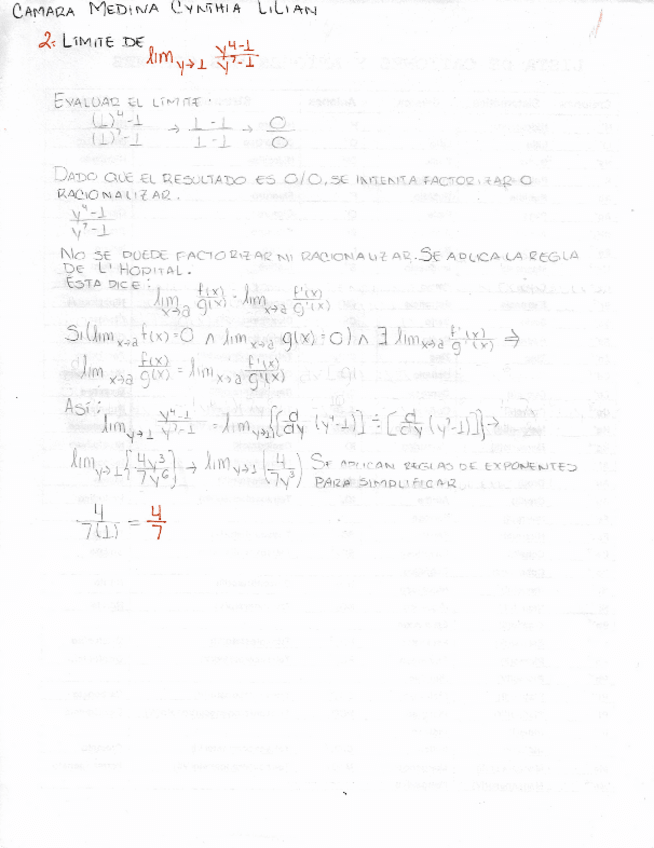 CAMARA MEDINA CYNTHIA LILIAN
1
2. LIMITE DE lim y→1 y⁴-1/y⁷-1
EVALUAR EL LÍMITE:
(1)⁴-1/(1)⁷-1 → 1-1/1-1 → 0/0
DADO QUE EL RESULTADO ES 0/0, SE INTENTA FACTORIZAR O
RACIONALIZAR.
y⁴-1/y⁷-1
NO SE PUEDE FACTORIZAR NI RACIONALIZAR. SE APLICA LA REGLA
DE L'HOPITAL.
ESTA DICE:
lim x→a f(x)/g(x) = lim x→a f'(x)/g'(x)
Si (lim x→a f(x)=0 ∧ lim x→a g(x)=0) ∧ ∃ lim x→a f'(x)/g'(x) ⇒
lim x→a f(x)/g(x) = lim x→a f'(x)/g'(x)
ASÍ:
lim y→1 y⁴-1/y⁷-1 = lim y→1 {[d/dy (y⁴-1)] ÷ [d/dy (y⁷-1)]} →
lim y→1 {4y³/7y⁶} → lim y→1 (4/7y³) SE APLICAN REGLAS DE EXPONENTES
PARA SIMPLIFICAR
4/7(1) = 4/7